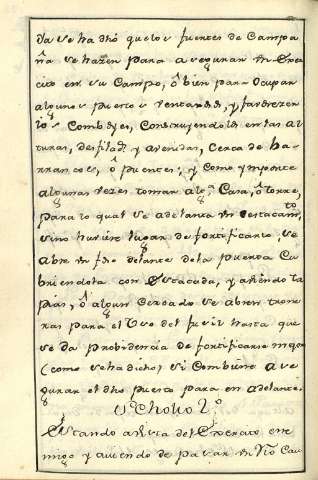 Ya se ha dho que los fuertes de Campa
ña se hazen para asegurar un Exer
cito en su Campo, ô bien para ocupar
algunos puertos ventaxs, y favorezer
los Comboyes, Construyendolos en las al
turas, desfilads y avenidas, cerca de ba
rrancos, ô puentes; y como ymporte
algunas vezes tomar alga Casa, ô torre,
para lo qual se adelanta un destacamto,
sino huviere lugar de fortificarlo, se
abre un foso delante de la puerta Cu
briendola con estacada, y asiendo ta
pias, ô algun Cercado se abren trone
ras para el Uso del fusil hasta que
se da probidencia de fortificarse mejor
(como se ha dicho) si Combiene ase
gurar el dho puerto para en adelante.
Scholio 2º
Estando a vista del Exercito ene
migo y aviendo de pasar un Rio Cau